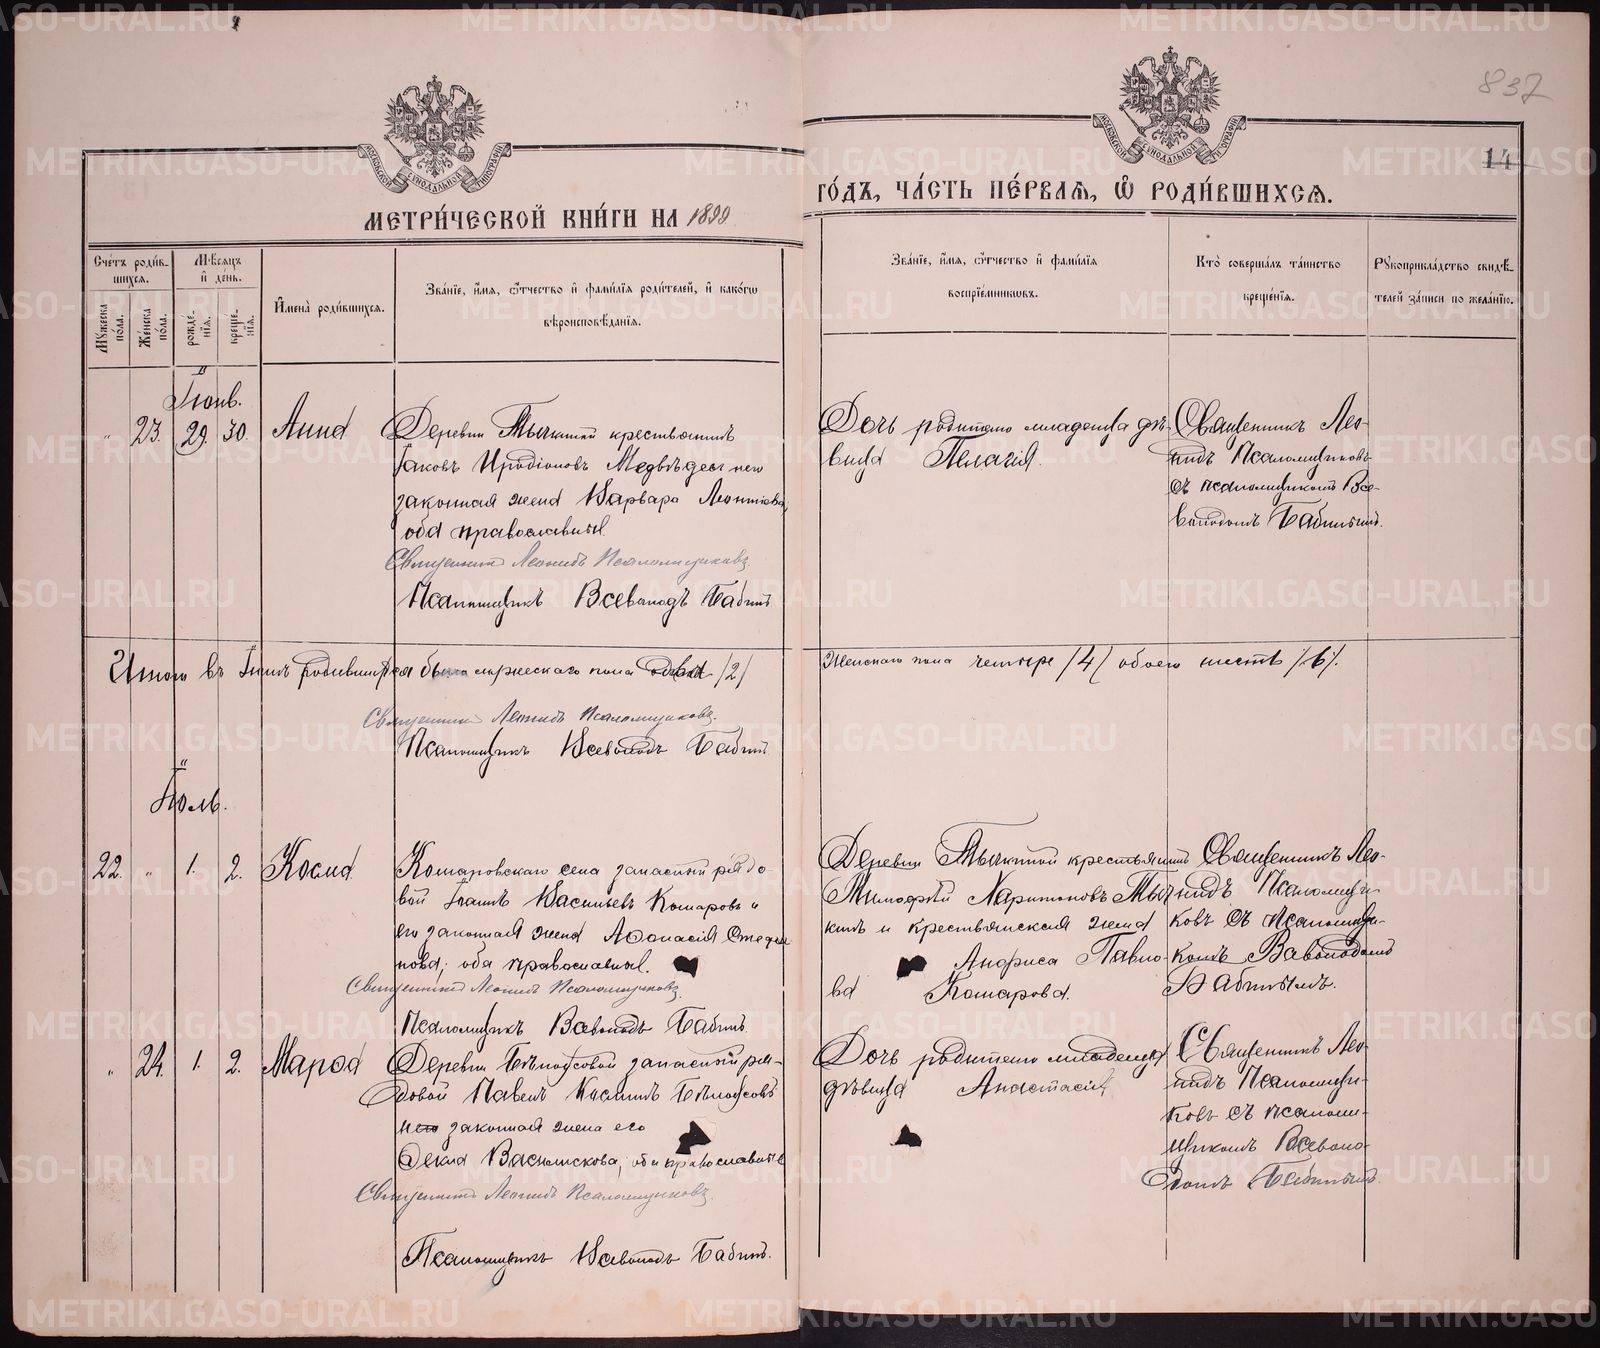 837
14
МЕТРИ́ЧЕСКОЙ КНИ́ГИ НА 1899
ГО́ДЪ, ЧА́СТЬ ПЕ́РВАЯ, Ѡ РОДИ́ВШИХСЯ.
Счетъ роди́в-
шихся.
Мѣсяцъ
и день.
Мужеска
пола.
Женска
пола.
рожде-
нія.
креще-
нія.
Имена родившихся.
Званіе, имя, отчество и фамилія родителей, и какого
вѣроисповѣданія.
Званіе, имя, отчество и фамилія
воспріемниковъ.
Кто совершалъ таинство
крещенія.
Рукоприкладство свидѣ-
телей записи по желанію.
Іюнь.
23. 29. 30. Анна
Деревни Тычкиной крестьянинъ
Іаковъ Иродіоновъ Медвѣдевъ и его
законная жена Варвара Леонтіева,
оба православные.
Священникъ Леонидъ Псаломщиковъ
Псаломщикъ Всеволодъ Бабинъ
Дочь родителя младенца дѣ-
вица Пелагія.
Священникъ Лео-
нидъ Псаломщиковъ
съ псаломщикомъ Все-
володомъ Бабинымъ.
Итого въ Іюнѣ родившихся было мужескаго пола два /2/
женскаго пола четыре /4/ обоего шесть /6/.
Священникъ Леонидъ Псаломщиковъ.
Псаломщикъ Всеволодъ Бабинъ
Іюль.
22. 1. 2. Косма
Комаровскаго села запасный рядо-
вой Іоаннъ Васильевъ Комаровъ и
его законная жена Афанасія Стефа
нова; оба православные.
Священникъ Леонидъ Псаломщиковъ
Псаломщикъ Всеволодъ Бабинъ.
Деревни Тычкиной крестьянинъ
Тимофей Харитоновъ Тыч
кинъ и крестьянская жена
Анфиса Павло-
ва Комарова.
Священникъ Лео-
нидъ Псаломщи-
ковъ съ псаломщи-
комъ Всеволодомъ
Бабинымъ.
24. 1. 2. Марѳа
Деревни Бѣлоусовой запасный ря-
довой Павелъ Косминъ Бѣлоусовъ
и его законная жена его
Ѳекла Василискова, оба православные
Священникъ Леонидъ Псаломщиковъ.
Псаломщикъ Всеволодъ Бабинъ.
Дочь родителя младенца
дѣвица Анастасія.
Священникъ Лео-
нидъ Псаломщи-
ковъ съ псалом-
щикомъ Всеволо-
домъ Бабинымъ.
METRIKI.GASO-URAL.RU